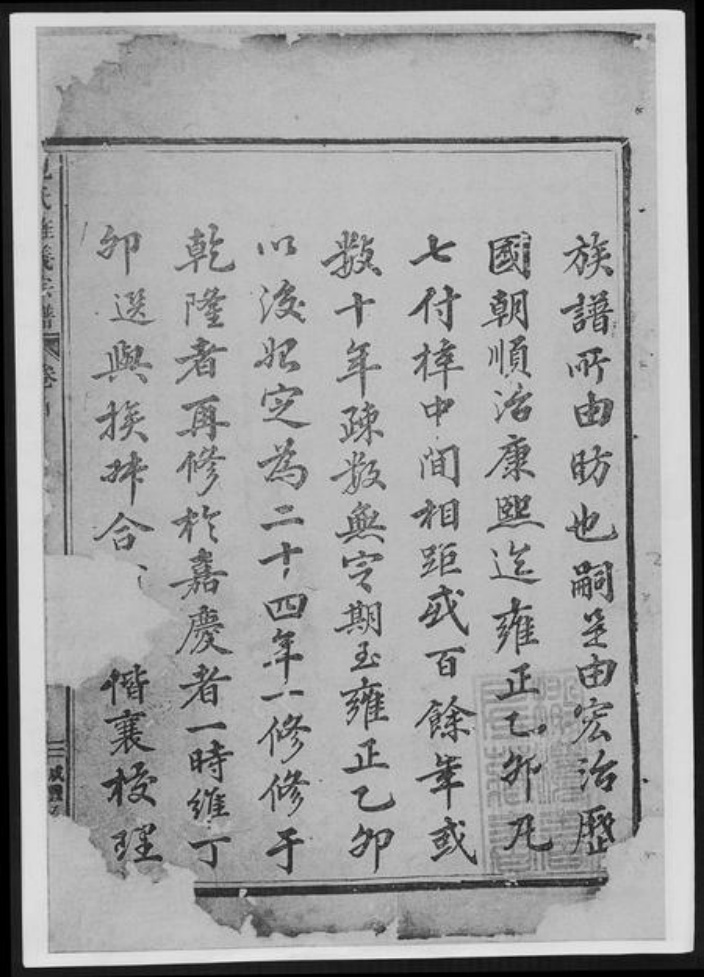 族譜所由昉也嗣是由宏治歷
國朝順治康熙迄雍正乙卯凡
七付梓中間相距或百餘年或
數十年疎數無定期至雍正乙卯
以後始定為二十四年一修修于
乾隆者再修於嘉慶者一時維丁
卯選與族姓合
偕襄校理
氏 義宗譜 卷